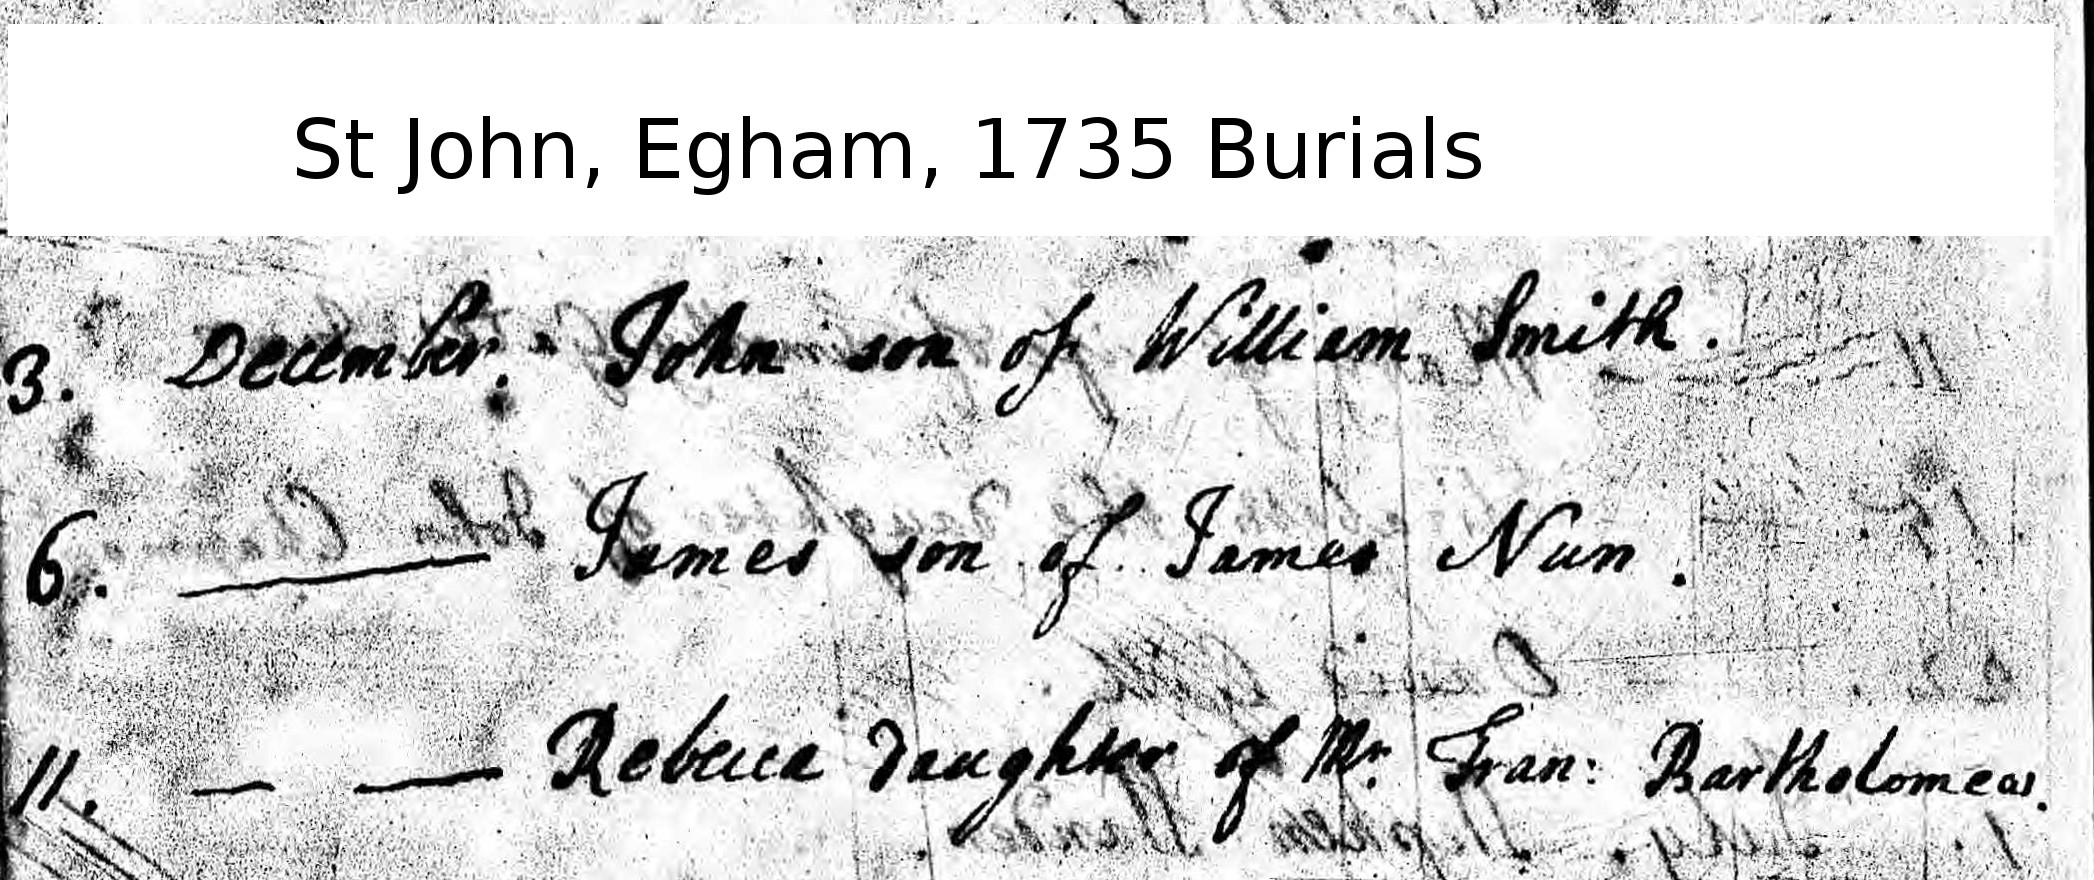 St John, Egham, 1735 Burials
3. December. John son of William Smith.
6. James son of James Nun.
11. Rebecca daughter of Mr Fran: Bartholomew.